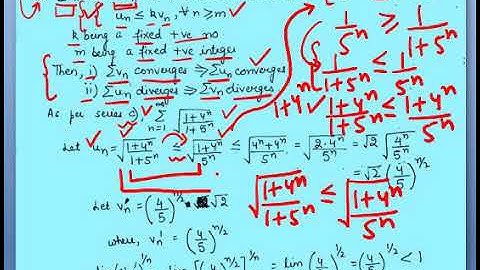 u_n ≤ k v_n, ∀ n ≥ m
k being a fixed +ve no
m being a fixed +ve integer
Then, i) Σv_n converges ⇒ Σu_n converges
ii) Σu_n diverges ⇒ Σv_n diverges
As per series c) ∞Σn=1 √((1+4^n)/(1+5^n))
Let u_n = √((1+4^n)/(1+5^n)) ≤ √((1+4^n)/5^n) ≤ √((4^n+4^n)/5^n) = √((2·4^n)/5^n) = √2 √(4^n/5^n)
= √2 (4/5)^(n/2)
Let v_n = (4/5)^(n/2) · √2
where, v_n' = (4/5)^(n/2)
[(4/5)^(n/2)]^(1/n) = lim (4/5)^(1/2) = (4/5)^(1/2) < 1
1/5^n ≥ 1/(1+5^n)
1/(1+5^n) ≤ 1/5^n
1+4^n
(1+4^n)/(1+5^n) ≤ (1+4^n)/5^n
√((1+4^n)/(1+5^n)) ≤ √((1+4^n)/5^n)